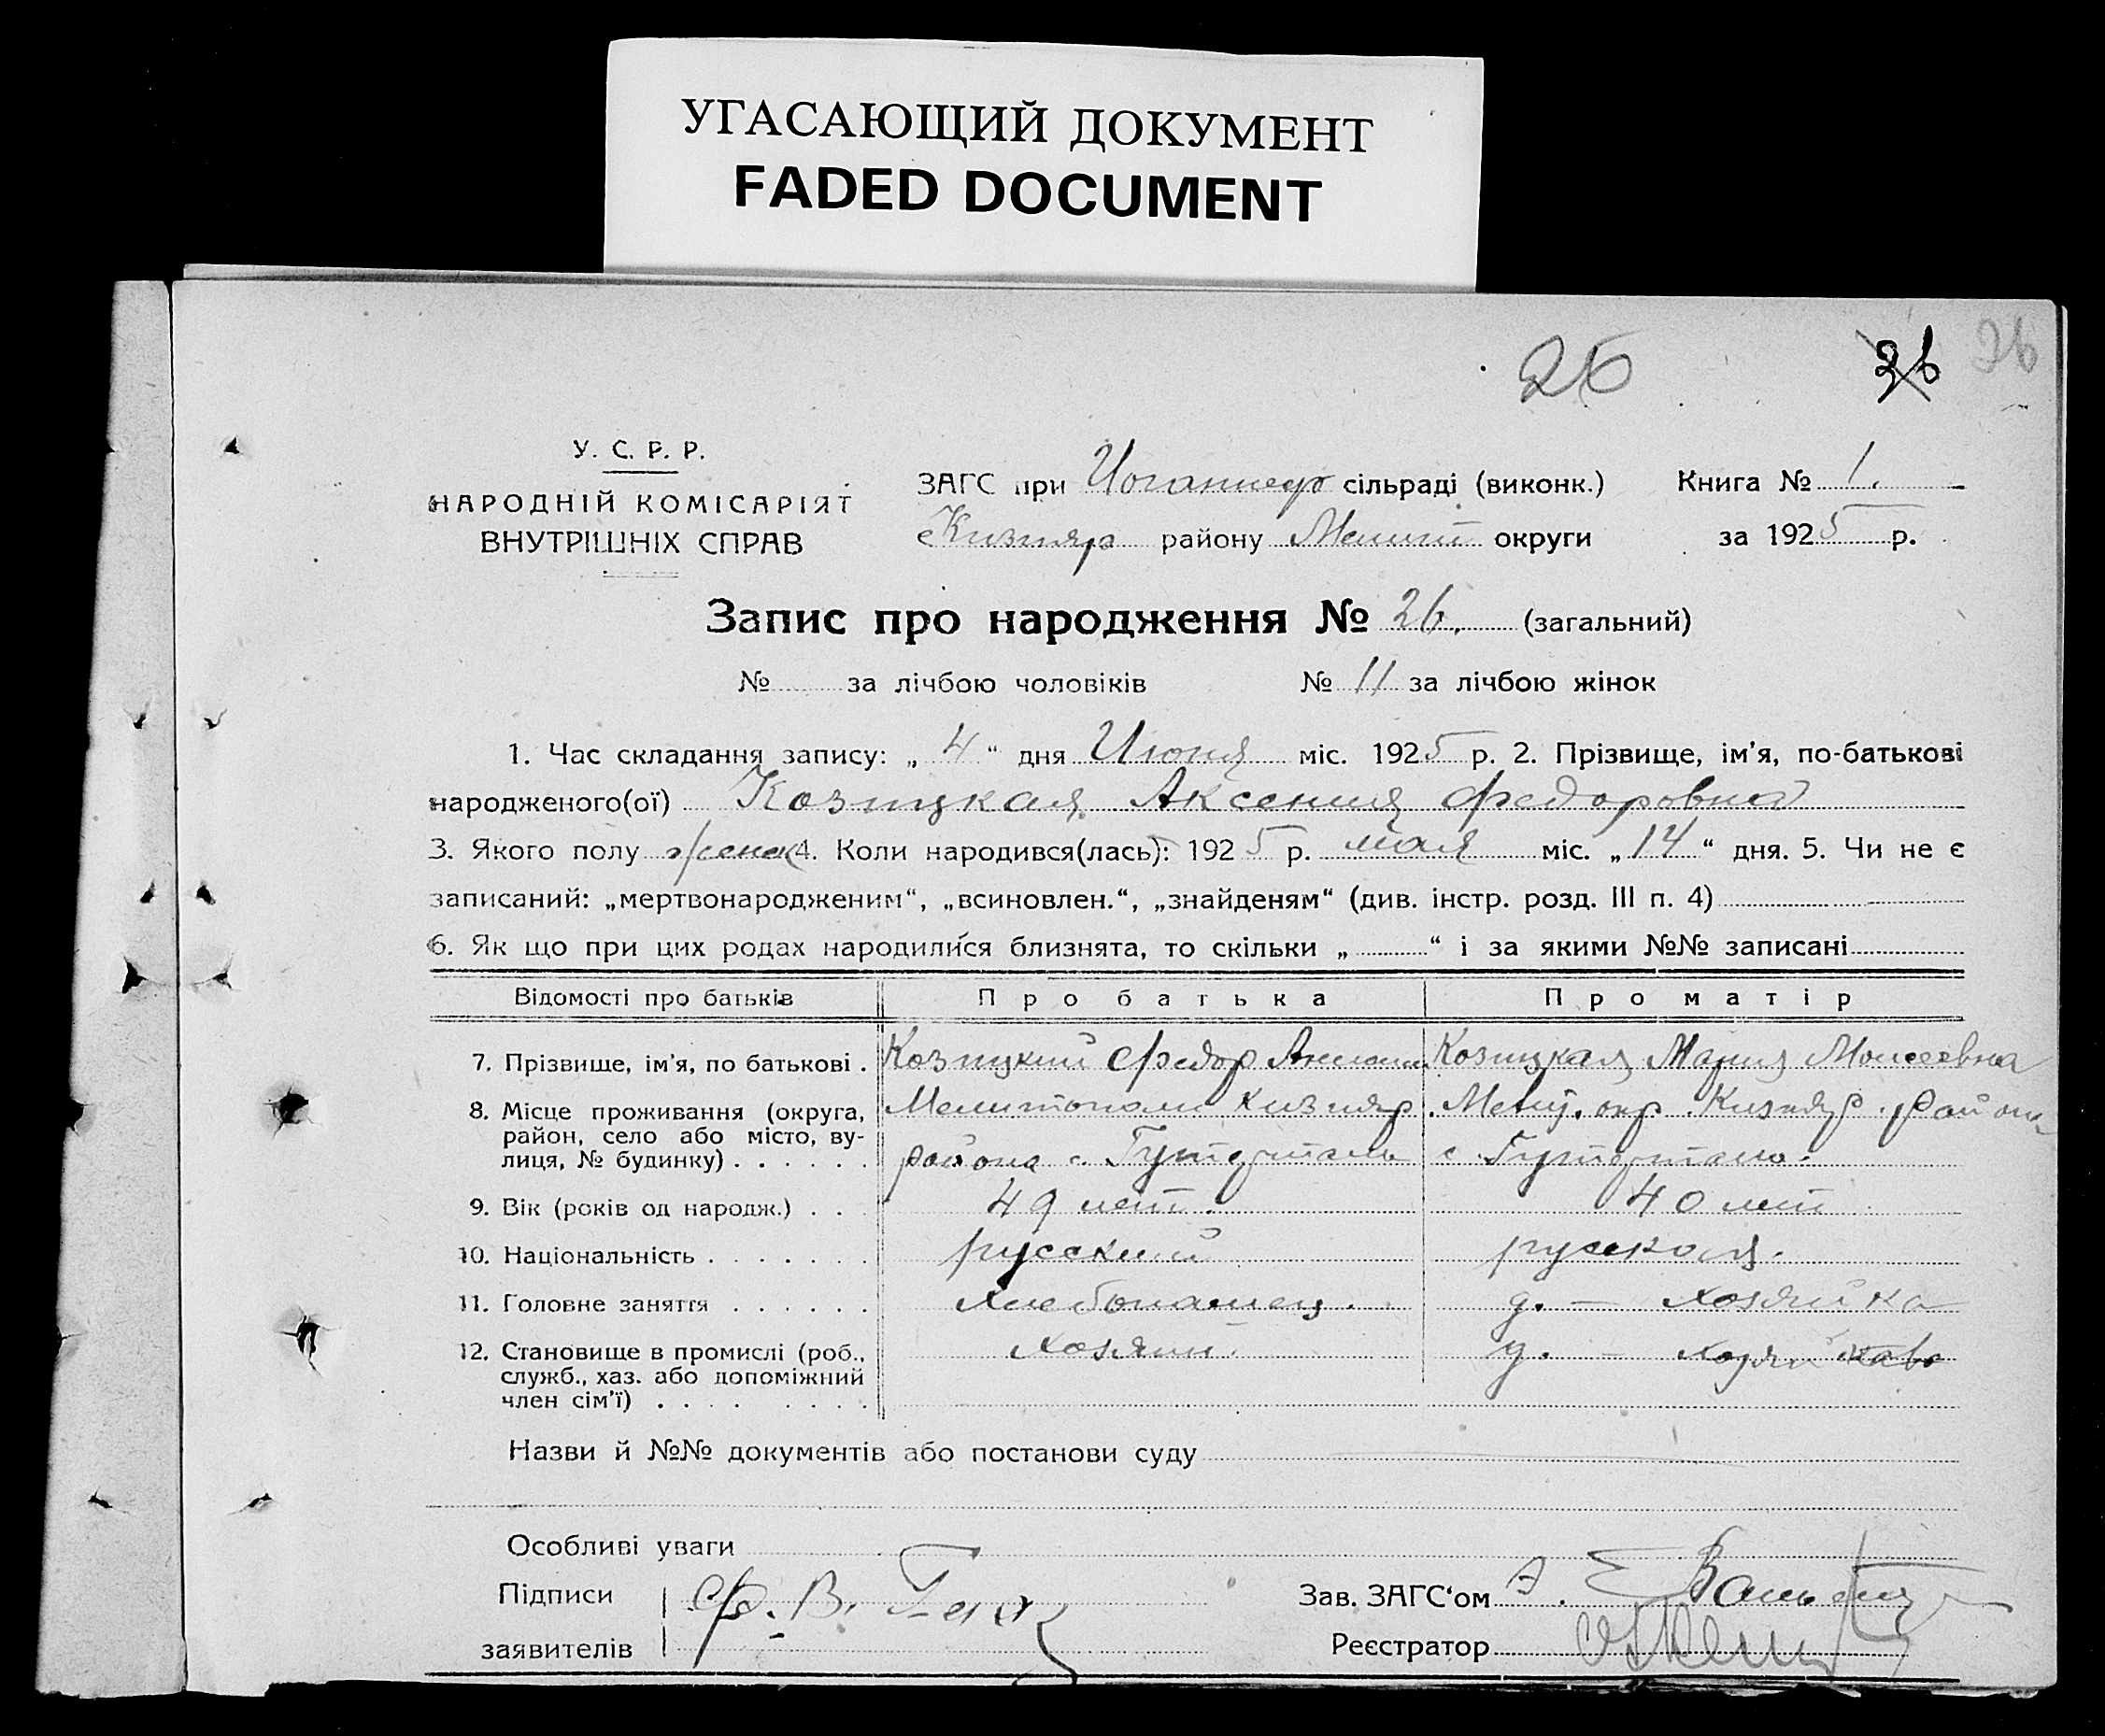 УГАСАЮЩИЙ ДОКУМЕНТ
FADED DOCUMENT
26 26 26
У. С. Р. Р.
НАРОДНІЙ КОМІСАРІЯТ
ВНУТРІШНІХ СПРАВ
ЗАГС при сільраді (виконк.) Книга № 1.
Кизияр району Мелит округи за 1925 р.
Запис про народження № 26. (загальний)
№ за лічбою чоловіків № 11 за лічбою жінок
1. Час складання запису: „4“ дня Июня міс. 1925 р. 2. Прізвище, ім'я, по-батькові
народженого(ої) Козицкая Аксения Федоровна
3. Якого полу женск 4. Коли народився(лась): 1925 р. мая міс. „14“ дня. 5. Чи не є
записаний: „мертвонародженим“, „всиновлен.“, „знайденям“ (див. інстр. розд. III п. 4)
6. Як що при цих родах народилися близнята, то скільки „ “ і за якими №№ записані
Відомості про батьків Про батька Про матір
7. Прізвище, ім'я, по батькові . Козицкий Федор Козицкая Мария Моисеевна
8. Місце проживання (округа, Мелитополи Кизияр. Мелит. окр. Кизияр. район
район, село або місто, ву- района с. с.
лиця, № будинку) . . . . . .
9. Вік (років од народж.) . . . 49 лет. 40 лет
10. Національність . . . . . . . русский русская.
11. Головне заняття . . . . . . Хлебопашец. д. — хозяйка
12. Становище в промислі (роб., хозяин. д. — хозяйка
служб., хаз. або допоміжний
член сім'ї) . . . . . . . .
Назви й №№ документів або постанови суду
Особливі уваги
Підписи Ф. В. Зав. ЗАГС'ом
заявителів Реєстратор